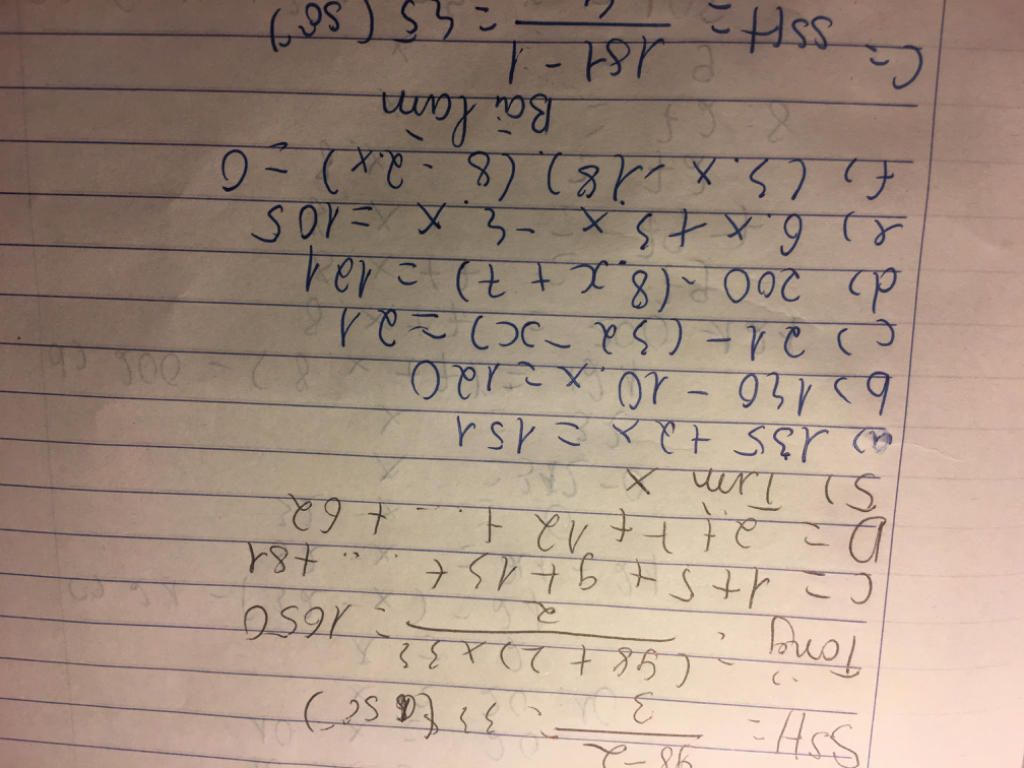 98-2
SSH = 3 = 33 (số)
Tổng = (98 + 2) x 33
2 = 1650
C = 1 + 5 + 9 + 13 + ... + 81
D = 2 + 7 + 12 + ... + 62
5) Tìm x
a) 135 + 2x = 151
b) 130 - 10 . x = 120
c) 21 - (32 - x) = 21
d) 200 - (8.x + 7) = 121
e) 6.x + 3 x - 4 x = 105
f) (3.x - 18).(8 - 2x) = 0
Bài làm
181 - 1
C = SSH = 4 = 45 (số)